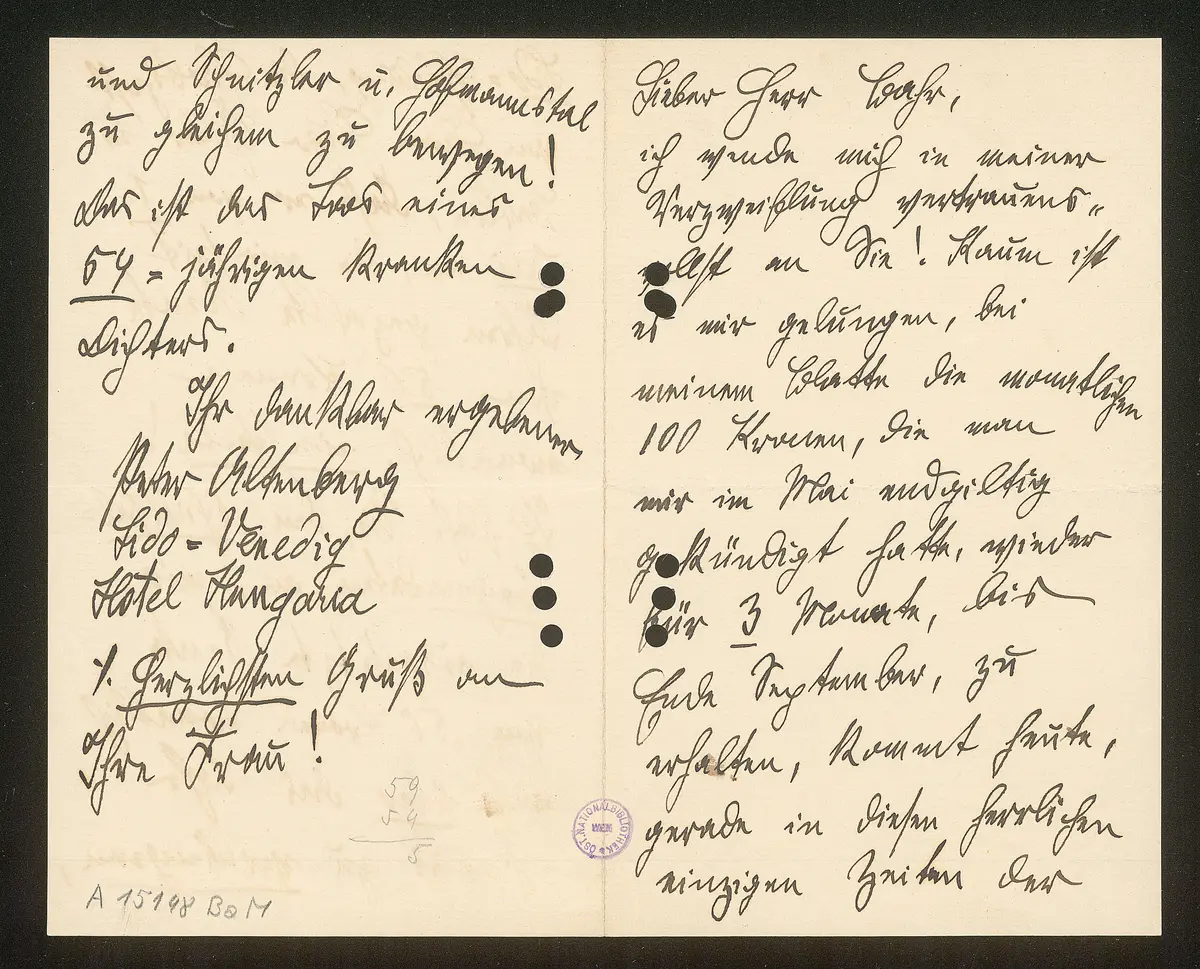 Lieber Herr Bahr,
ich wende mich in meiner
Verzweiflung vertrauens„
vollst an Sie! Kaum ist
es mir gelungen, bei
meinem Blatte die monatlichen
100 Kronen, die man
mir im Mai endgiltig
gekündigt hatte, wieder
für 3 Monate, bis
Ende September, zu
erhalten, kommt heute,
gerade in diesen herrlichen
einzigen Zeiten der
und Schnitzler u. Hofmannstal
zu gleichem zu bewegen!
Das ist das Loos eines
54 = jährigen kranken
Dichters.
Ihr dankbar ergebener
Peter Altenberg
Lido = Venedig
Hôtel Hungaria
/. Herzlichsten Gruß an
Ihre Frau!
59
54
5
ÖST. NATIONALBIBLIOTHEK WIEN
A 15198 BaM